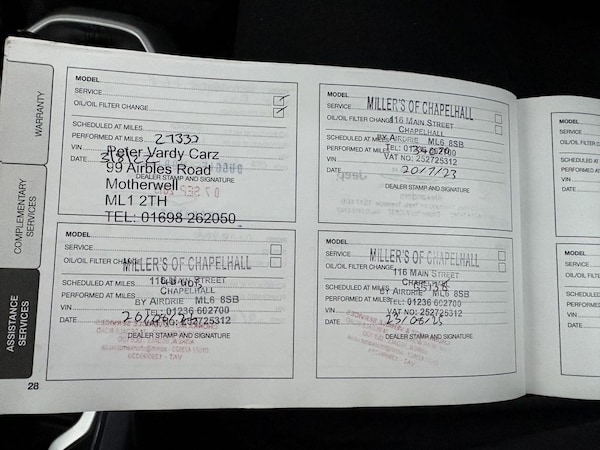 WARRANTY
COMPLEMENTARY
SERVICES
ASSISTANCE
SERVICES
28
MODEL
SERVICE
OIL/OIL FILTER CHANGE
SCHEDULED AT MILES
PERFORMED AT MILES 27332
VIN
DATE
DEALER STAMP AND SIGNATURE
Peter Vardy Carz
99 Airbles Road
Motherwell
ML1 2TH
TEL: 01698 262050
MODEL
SERVICE
OIL/OIL FILTER CHANGE
SCHEDULED AT MILES
PERFORMED AT MILES
VIN
DATE 20/7/23
DEALER STAMP AND SIGNATURE
MILLER'S OF CHAPELHALL
116 MAIN STREET
CHAPELHALL
BY AIRDRIE ML6 8SB
TEL: 01236 602700
VAT NO: 252725312
Jeep
MODEL
SERVICE
OIL/OIL FILTER CHANGE
SCHEDULED AT MILES
PERFORMED AT MILES
VIN
DATE
DEALER STAMP AND SIGNATURE
MILLER'S OF CHAPELHALL
116 MAIN STREET
CHAPELHALL
BY AIRDRIE ML6 8SB
TEL: 01236 602700
VAT NO: 252725312
MODEL
SERVICE
OIL/OIL FILTER CHANGE
SCHEDULED AT MILES
PERFORMED AT MILES
VIN
DATE 23/06/25
DEALER STAMP AND SIGNATURE
MILLER'S OF CHAPELHALL
116 MAIN STREET
CHAPELHALL
BY AIRDRIE ML6 8SB
TEL: 01236 602700
VAT NO: 252725312
MODEL
SERVICE
OIL/OIL
SCHEDULED
PERFORMED A
VIN
DATE
MODEL
SERVICE
OIL/OIL FIL
SCHEDULED AT
PERFORMED AT
VIN
DATE